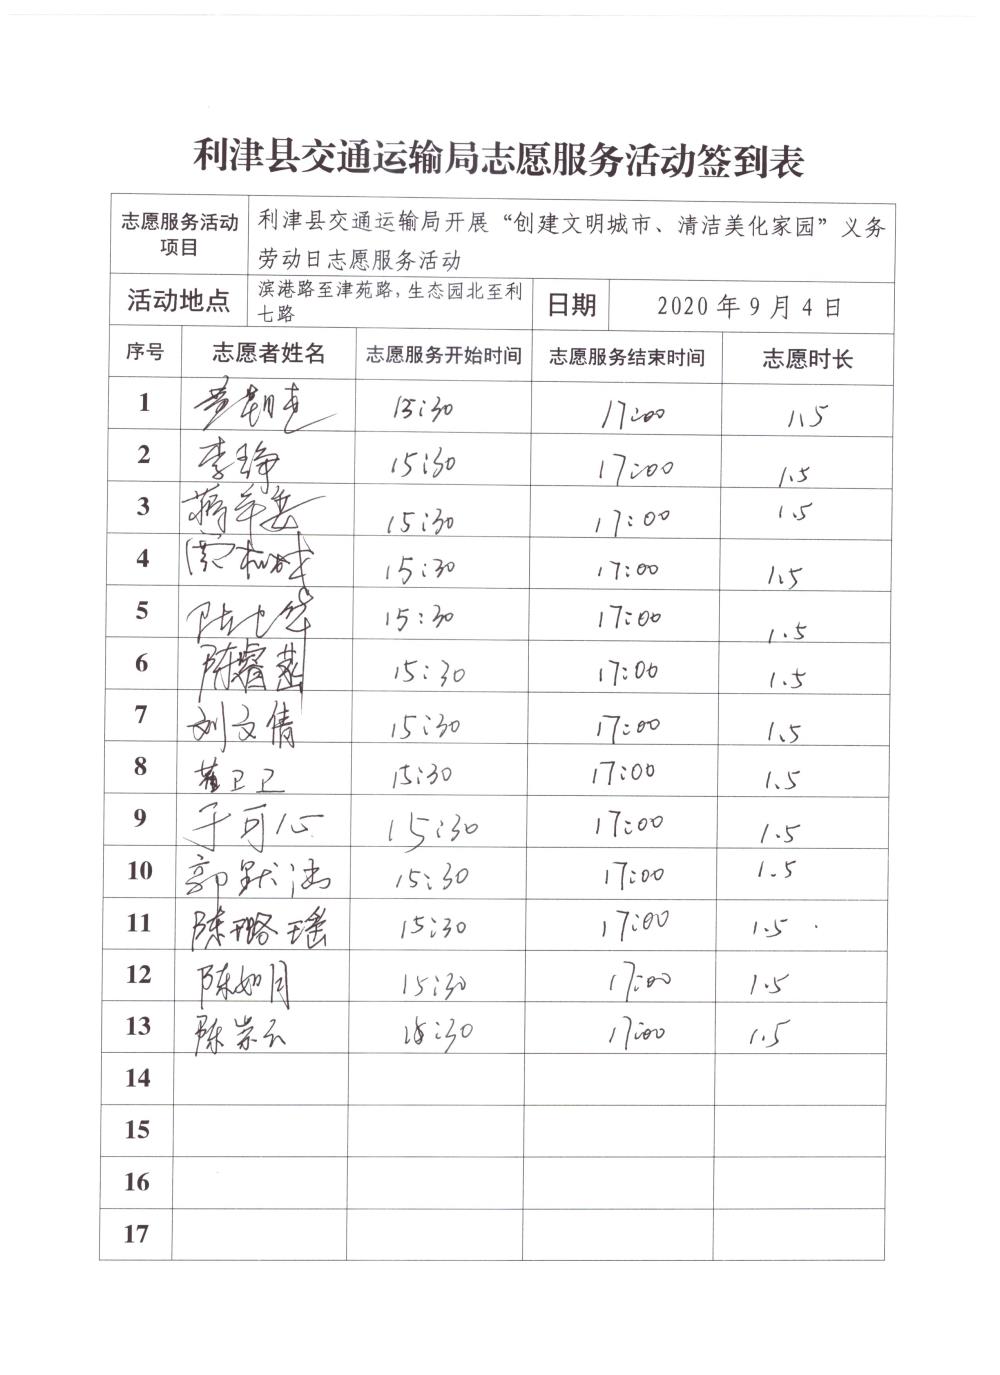 利津县交通运输局志愿服务活动签到表
志愿服务活动
项目
利津县交通运输局开展“创建文明城市、清洁美化家园”义务
劳动日志愿服务活动
活动地点
滨港路至津苑路,生态园北至利
七路
日期
2020 年 9 月 4 日
序号 志愿者姓名 志愿服务开始时间 志愿服务结束时间 志愿时长
1 15:30 17:00 1.5
2 李琤 15:30 17:00 1.5
3 15:30 17:00 1.5
4 15:30 17:00 1.5
5 15:30 17:00 1.5
6 陈睿菡 15:30 17:00 1.5
7 刘文倩 15:30 17:00 1.5
8 董卫卫 15:30 17:00 1.5
9 于可心 15:30 17:00 1.5
10 郭默涵 15:30 17:00 1.5
11 陈璐瑶 15:30 17:00 1.5
12 陈如月 15:30 17:00 1.5
13 陈崇云 15:30 17:00 1.5
14
15
16
17